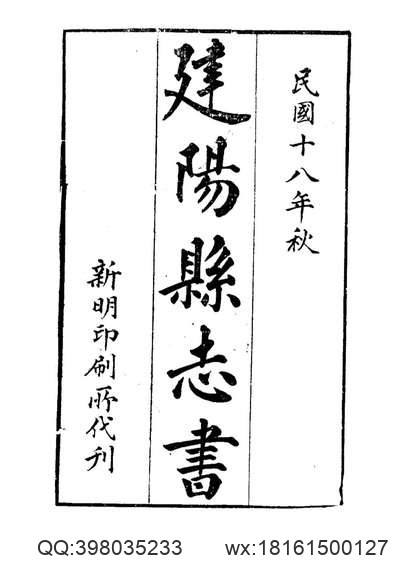 民國十八年秋
建陽縣志書
新明印刷所代刋
QQ:398035233 wx:18161500127